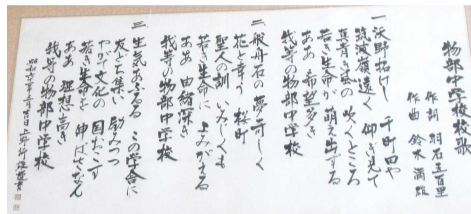 物部中学校校歌
作詞 明石五百里
作曲 鈴木満雄
一 沃野拓けし 千町田や
筑波嶺遠く 仰ぎ見て
真青き風の 吹くところ
若き生命が 萌え出ずる
ああ 希望多き
我等の物部中学校
二 般若石の 夢可しく
花と匂う 桜町
聖人の訓 いみじくも
若き生命に よみがえる
ああ 由緒深き
我等の物部中学校
三 生気あふるる この学舎に
友どち集い 励みつつ
わが文化の 国おこす
若き生命を 伸ばさなん
ああ 理想高き
我等の物部中学校